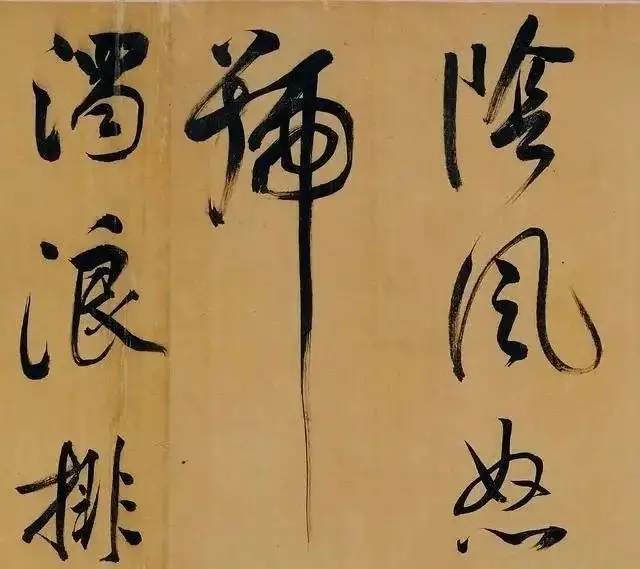 陰風怒
號
濁浪排